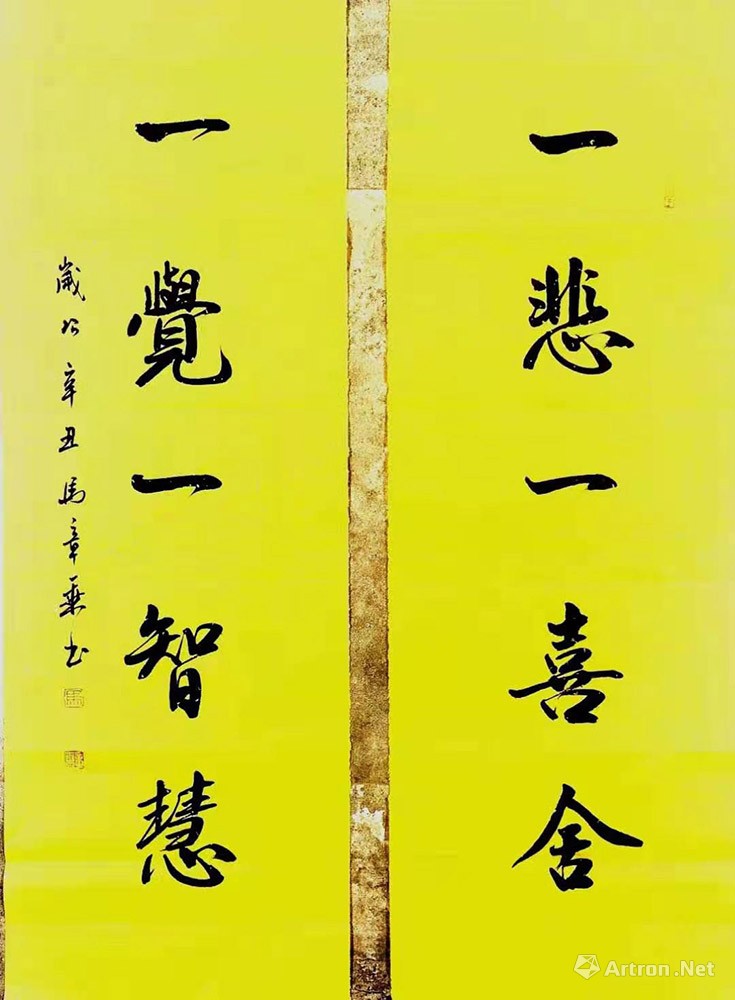 一悲一喜舍
一覺一智慧
歲次辛丑馬章乘书
Artron.Net